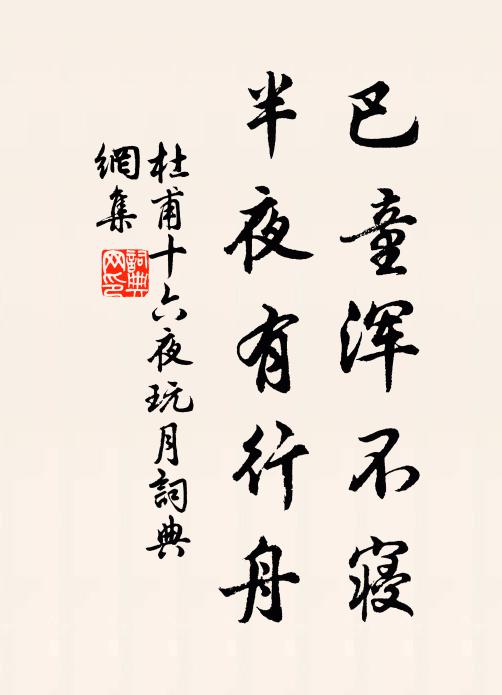 巴童浑不寝
半夜有行舟
杜甫十六夜玩月詞典
網集
詞典网印